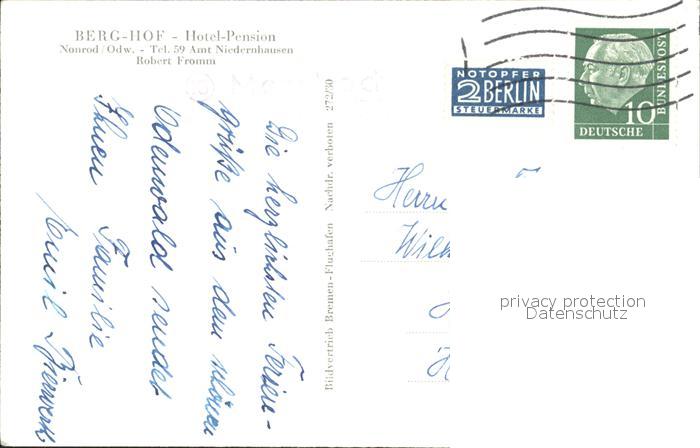 BERG-HOF - Hotel-Pension
Nonrod/Odw. - Tel. 59 Amt Niedernhausen
Robert Fromm
Die herzlichsten Ferien-
grüße aus dem schönen
Odenwald sendet
Ihnen Familie
Emil
Bildvertrieb Bremen-Flughafen Nachdr. verboten 272/30
NOTOPFER
2 BERLIN
STEUERMARKE
10
DEUTSCHE
BUNDESPOST
Herrn
Wilh
privacy protection
Datenschutz